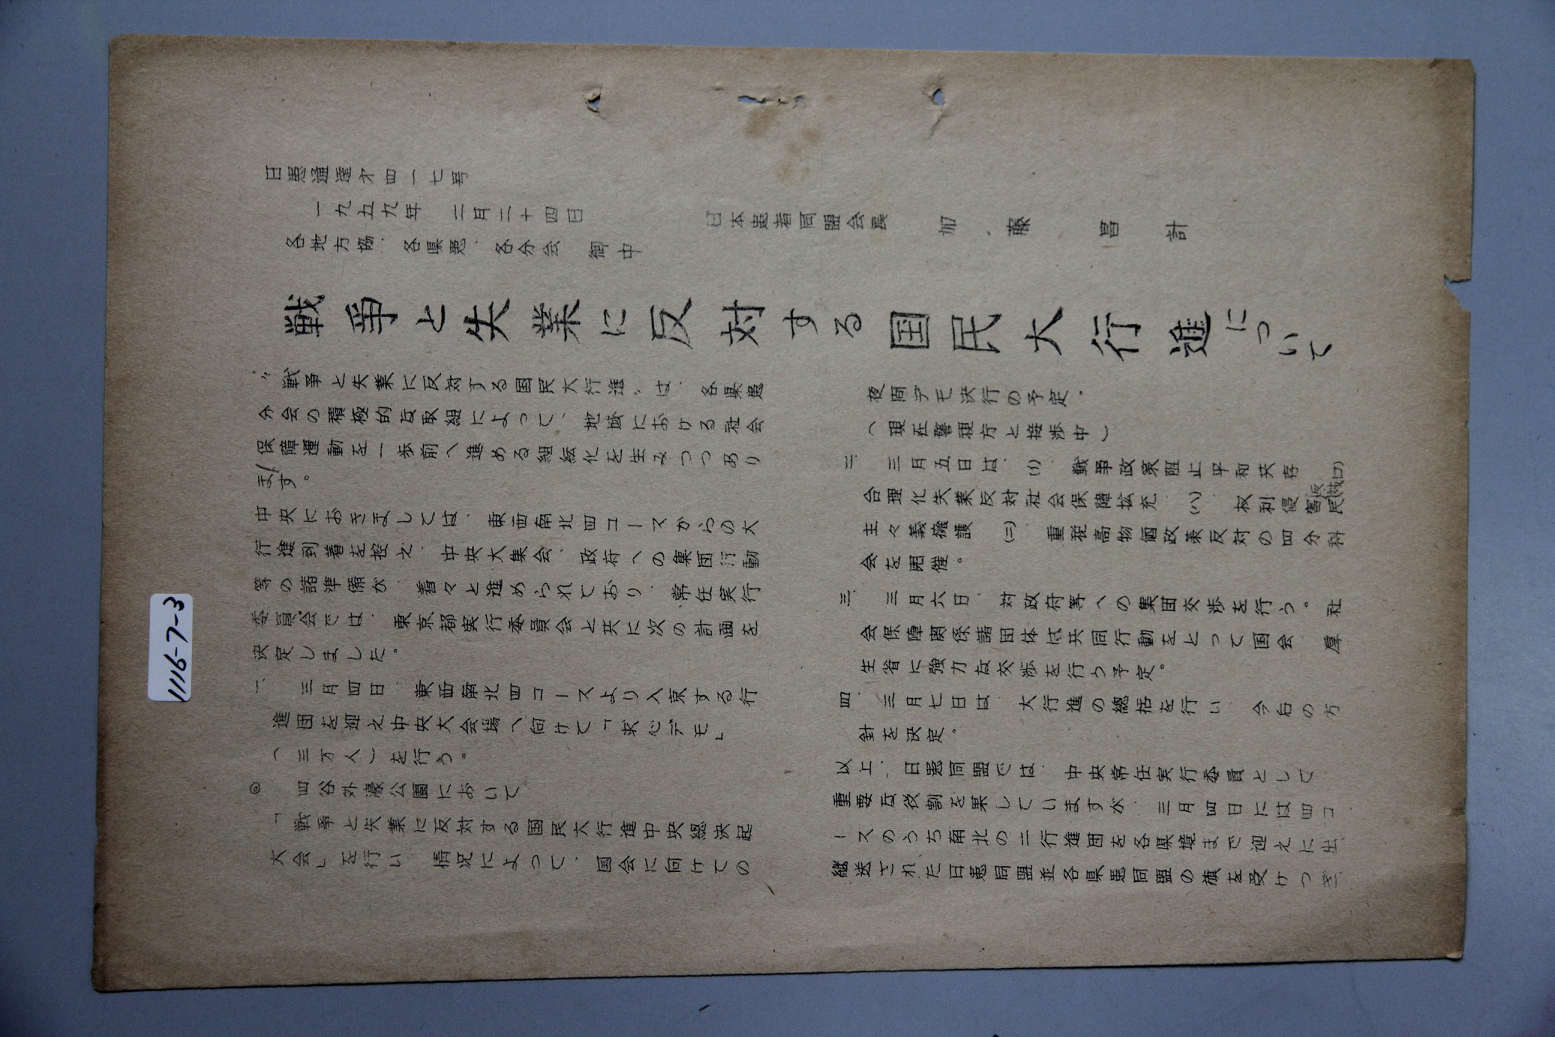 日患通達才四一七号
一九五九年 二月二十四日
日本患者同盟会長 加藤 昌計
各地方協、各県患、各分会 御中
戦争と失業に反対する国民大行進について
〝戦争と失業に反対する国民大行進〟は、各県患
分会の積極的な取組によって、地域における社会
保障運動を一歩前へ進める組織化を生みつつあり
ます。
中央におきましては、東西南北四コースからの大
行進到着を控え、中央大集会、政府への集団行動
等の諸準備が、着々と進められており、常任実行
委員会では、東京都実行委員会と共に次の計画を
決定しました。
一、三月四日、東西南北四コースより入京する行
進団を迎え中央大会場へ向けて「求心デモ」
(三万人)を行う。
◎ 四谷外濠公園において
「戦争と失業に反対する国民大行進中央総決起
大会」を行い、情況によって、国会に向けての
夜間デモ決行の予定。
(現在警視庁と接渉中)
二、三月五日は、(イ) 戦争政策阻止平和共存 (ロ)
合理化失業反対社会保障拡充 (ハ) 权利侵害反対民
主々義擁護 (ニ) 重税高物価政策反対の四分科
会を開催。
三、三月六日、対政府等への集団交渉を行う。社
会保障関係諸団体は共同行動をとって国会、厚
生省に強力な交渉を行う予定。
四、三月七日は、大行進の総括を行い、今后の方
針を決定。
以上、日患同盟では、中央常任実行委員として
重要な役割を果していますが、三月四日には四コ
ースのうち南北の二行進団を各県境まで迎えに出
継送された日患同盟並各県患同盟の旗を受けつぎ
1116-7-3